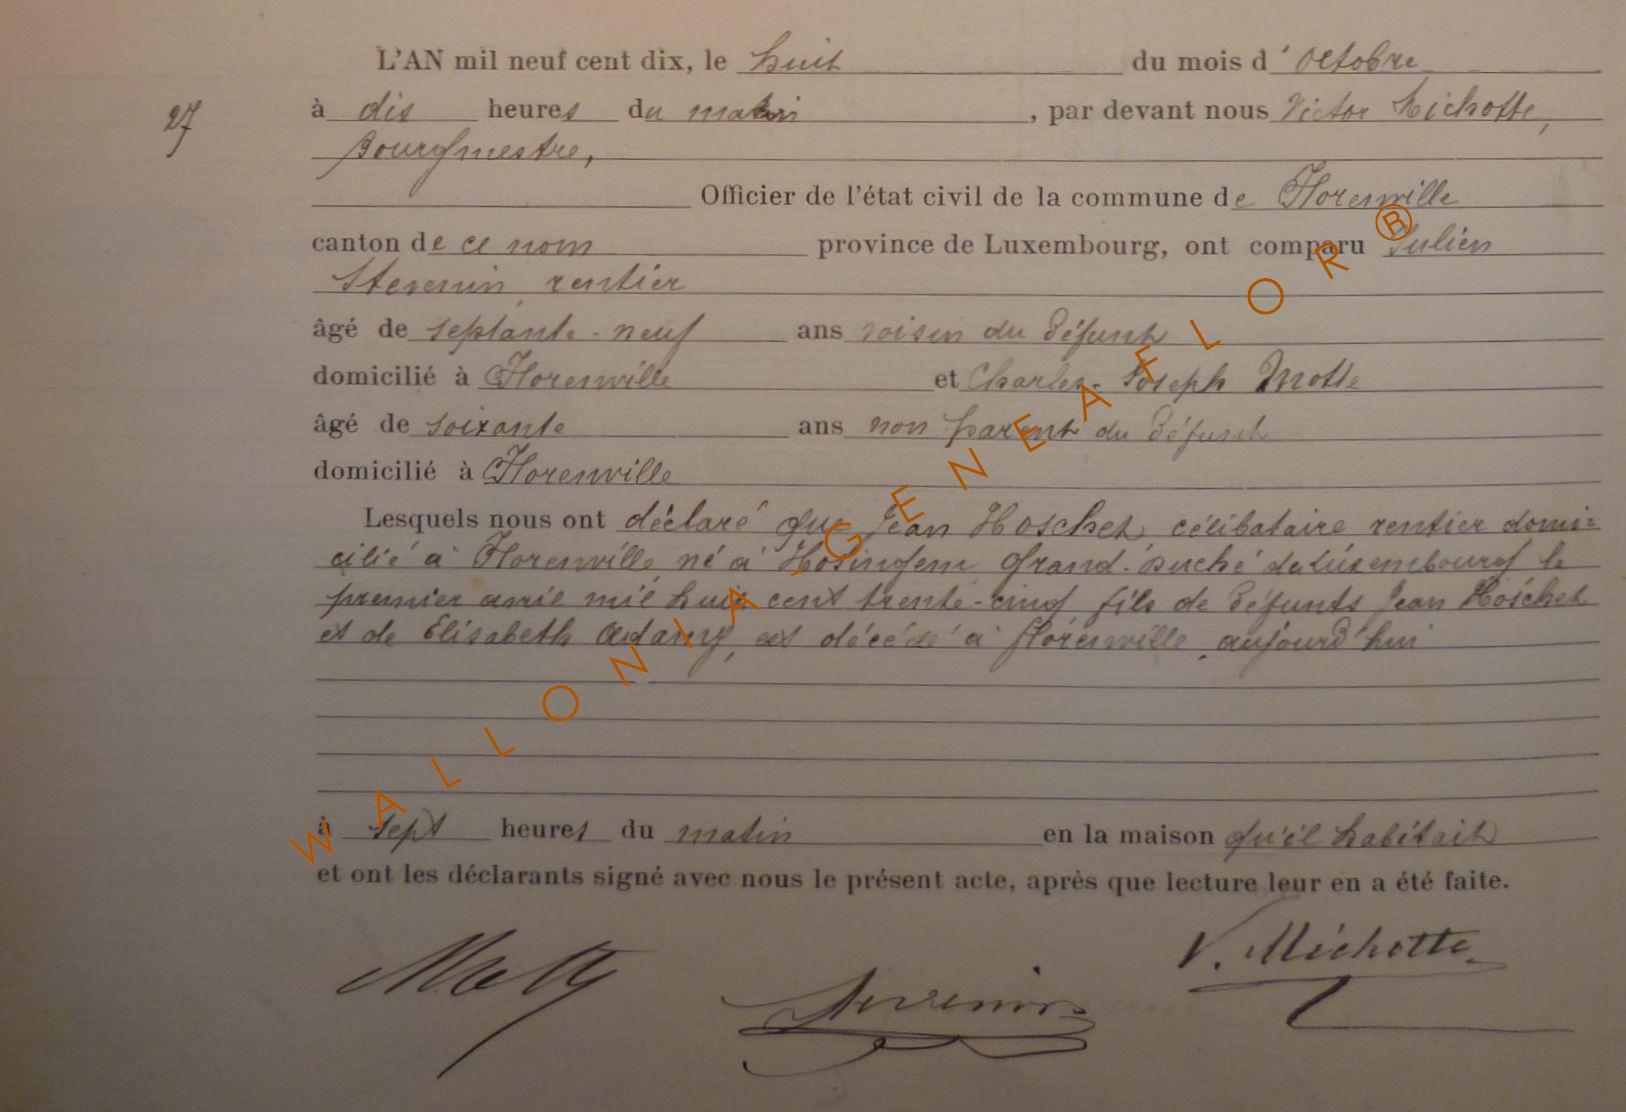 L'AN mil neuf cent dix, le huit du mois d'Octobre
27
à dix heures du matin, par devant nous Victor Michotte,
Bourgmestre,
Officier de l'état civil de la commune de Florenville
canton de ce nom province de Luxembourg, ont comparu Julien
Stevenin rentier
âgé de septante-neuf ans voisin du défunt
domicilié à Florenville et Charles-Joseph Motte
âgé de soixante ans non parent du défunt
domicilié à Florenville
Lesquels nous ont déclaré que Jean Hoschet, célibataire rentier domi-
cilié à Florenville né à Hosingem Grand-Duché de Luxembourg le
premier avril mil huit cent trente-cinq fils de défunts Jean Hoschet
et de Elisabeth est décédé à Florenville, aujourd'hui
à sept heures du matin en la maison qu'il habitait
et ont les déclarants signé avec nous le présent acte, après que lecture leur en a été faite.
Motte Stevenin V. Michotte
WALLONIA-GENEAFLOR®